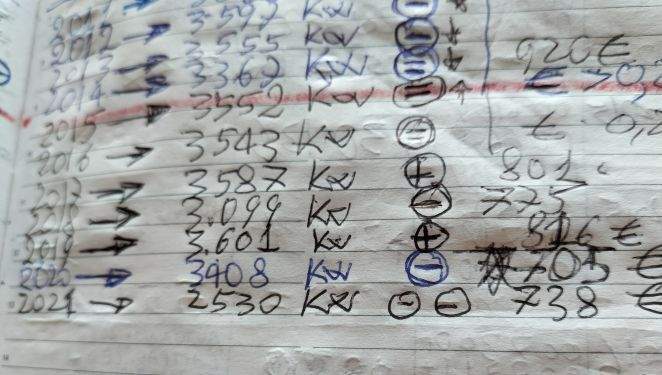 3.597 Kw ⊖ *
2012 → 3.555 Kw ⊖ *
2013 → 3362 Kw ⊖ * 920€
2014 → 3552 Kw ⊖ * € >0,
2015 → 3543 Kw ⊖ € . 0,2
2016 → 3.587 Kw ⊕ 801
→ 3.099 Kw ⊖ 775
2019 → 3.601 Kw ⊕ 816 €
2020 → 3408 Kw ⊖ 705 €
2021 → 2530 Kw ⊖ ⊖ 738 €